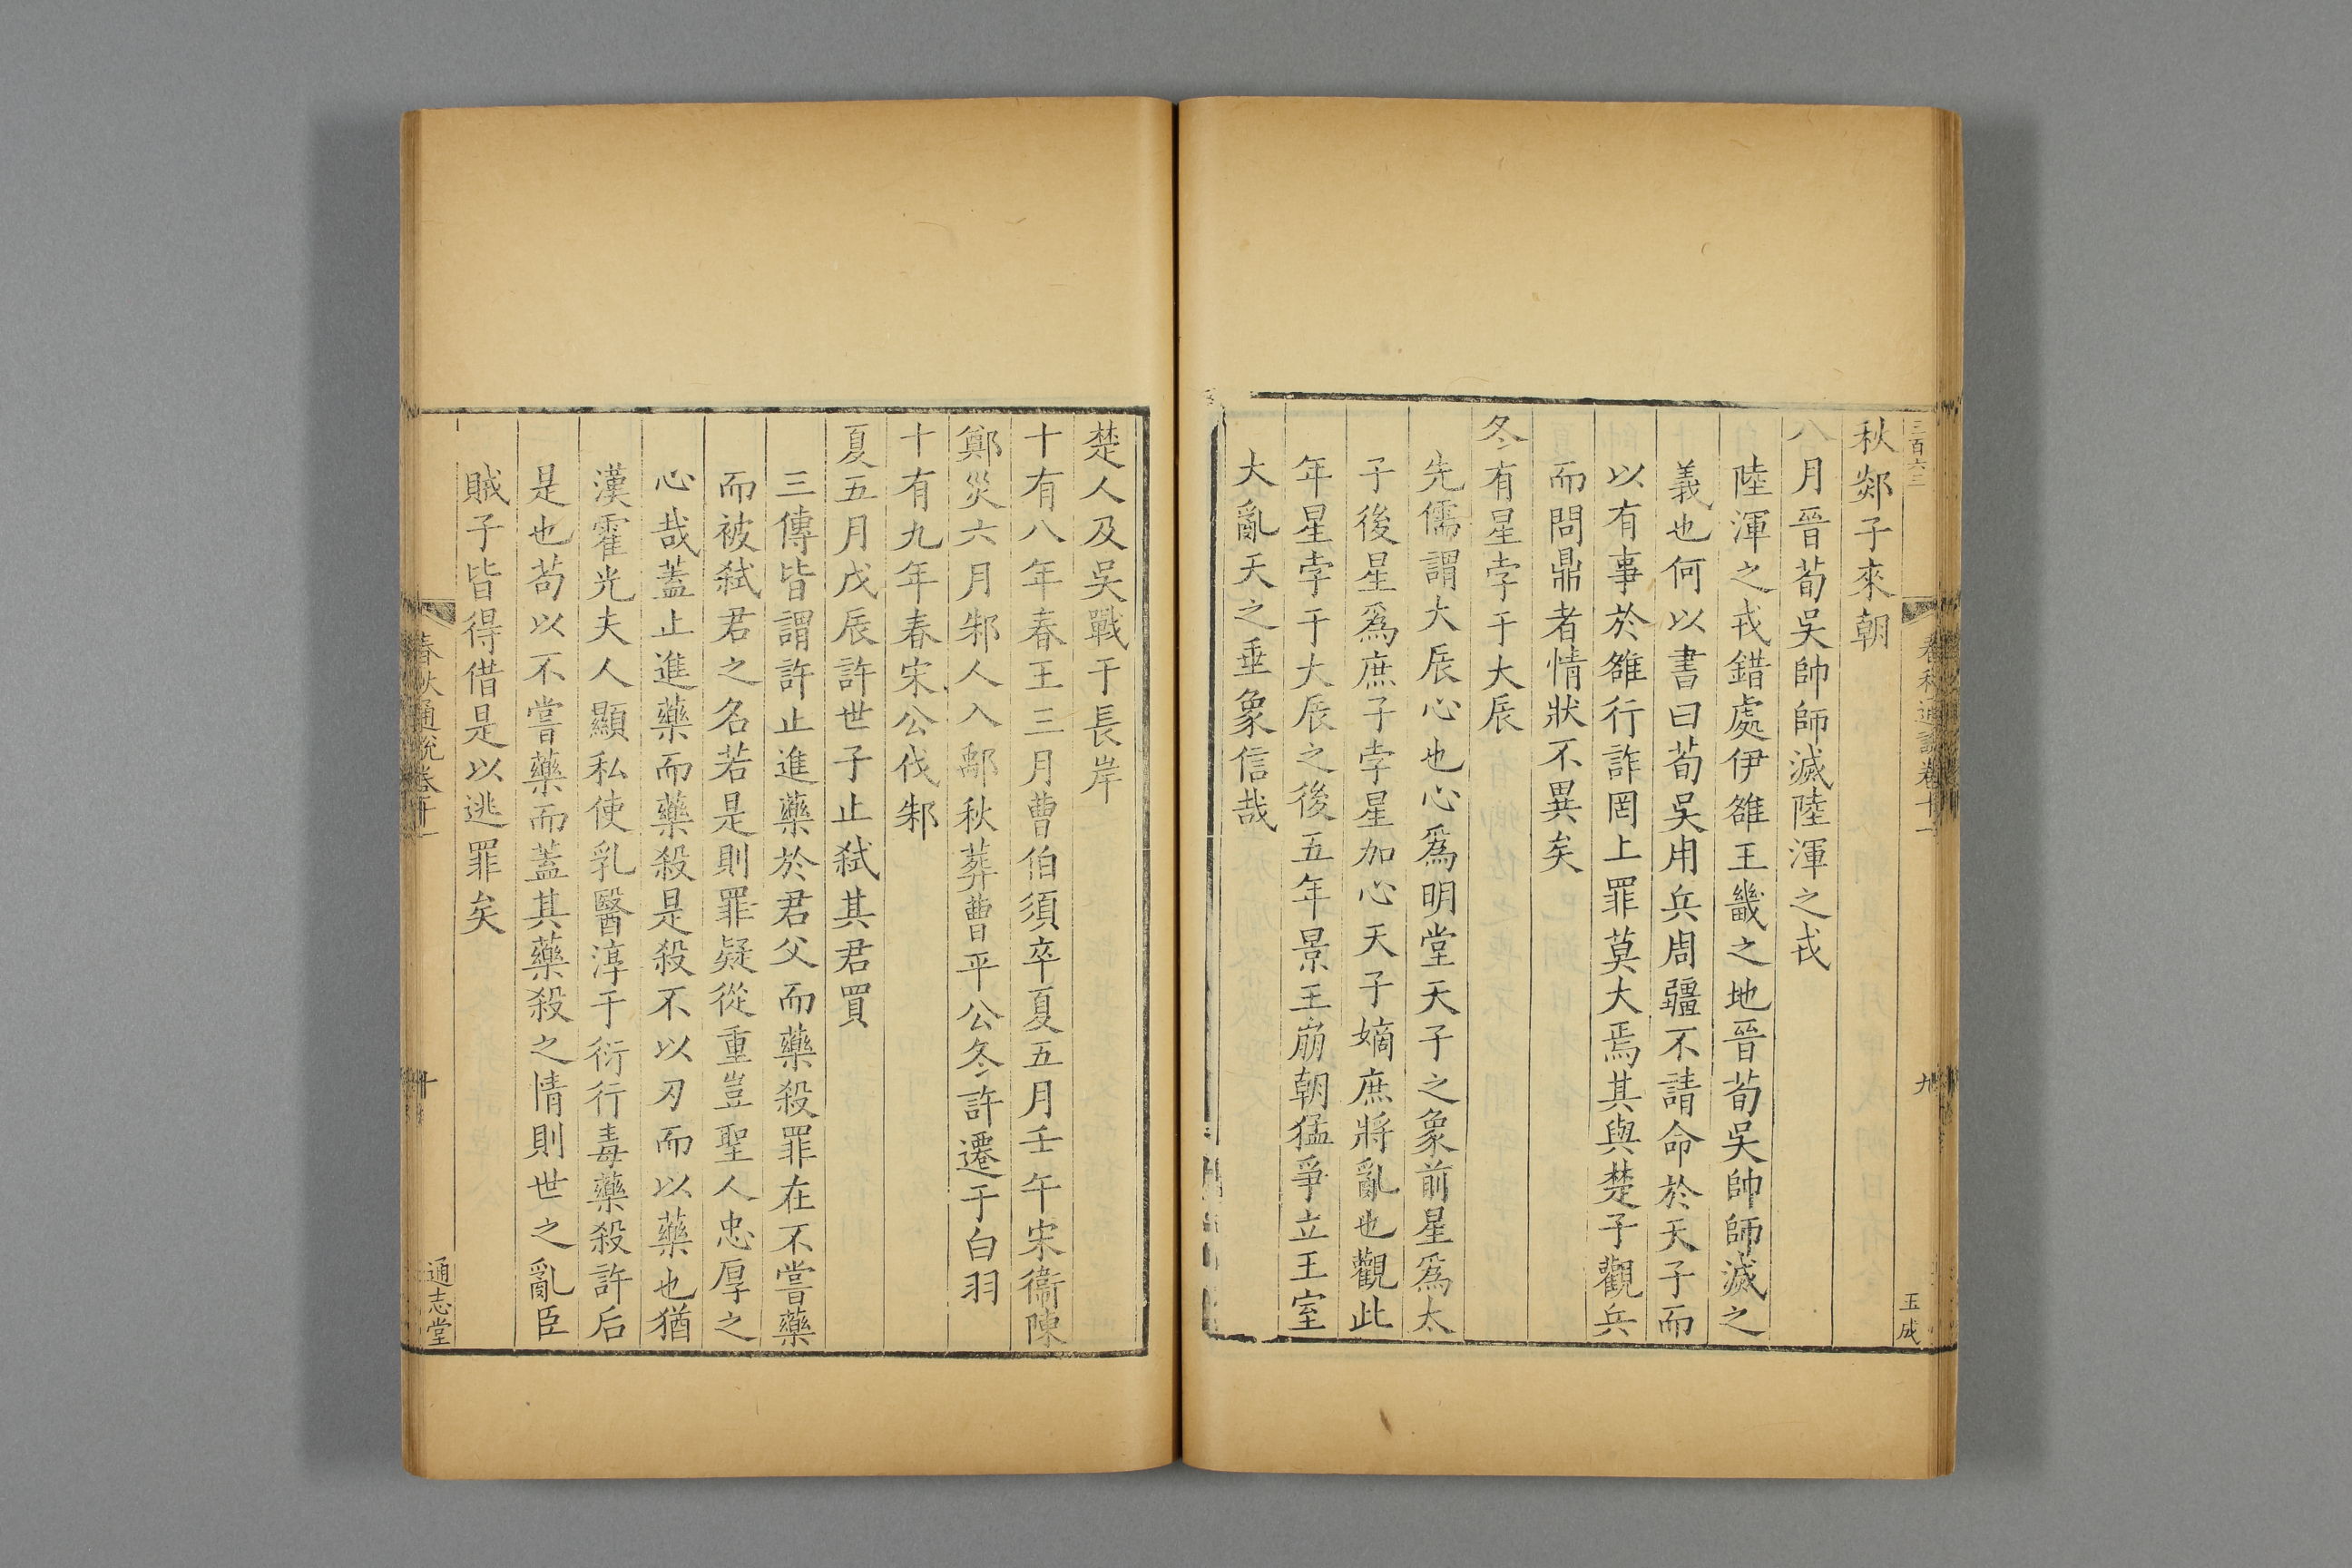 三百六三
春秋通說卷十一
九
玉成
秋郯子來朝
八月晉荀吳帥師滅陸渾之戎
陸渾之戎錯處伊雒王畿之地晉荀吳帥師滅之
義也何以書曰荀吳用兵周疆不請命於天子而
以有事於雒行詐罔上罪莫大焉其與楚子觀兵
而問鼎者情狀不異矣
冬有星孛于大辰
先儒謂大辰心也心爲明堂天子之象前星爲太
子後星爲庶子孛星加心天子嫡庶將亂也觀此
年星孛于大辰之後五年景王崩朝猛爭立王室
大亂天之垂象信哉
楚人及吳戰于長岸
十有八年春王三月曹伯須卒夏五月壬午宋衞陳
鄭災六月邾人入鄅秋葬曹平公冬許遷于白羽
十有九年春宋公伐邾
夏五月戊辰許世子止弑其君買
三傳皆謂許止進藥於君父而藥殺罪在不嘗藥
而被弑君之名若是則罪疑從重豈聖人忠厚之
心哉蓋止進藥而藥殺是殺不以刃而以藥也猶
漢霍光夫人顯私使乳醫淳于衍行毒藥殺許后
是也苟以不嘗藥而蓋其藥殺之情則世之亂臣
賊子皆得借是以逃罪矣
春秋通說卷十一
十
通志堂